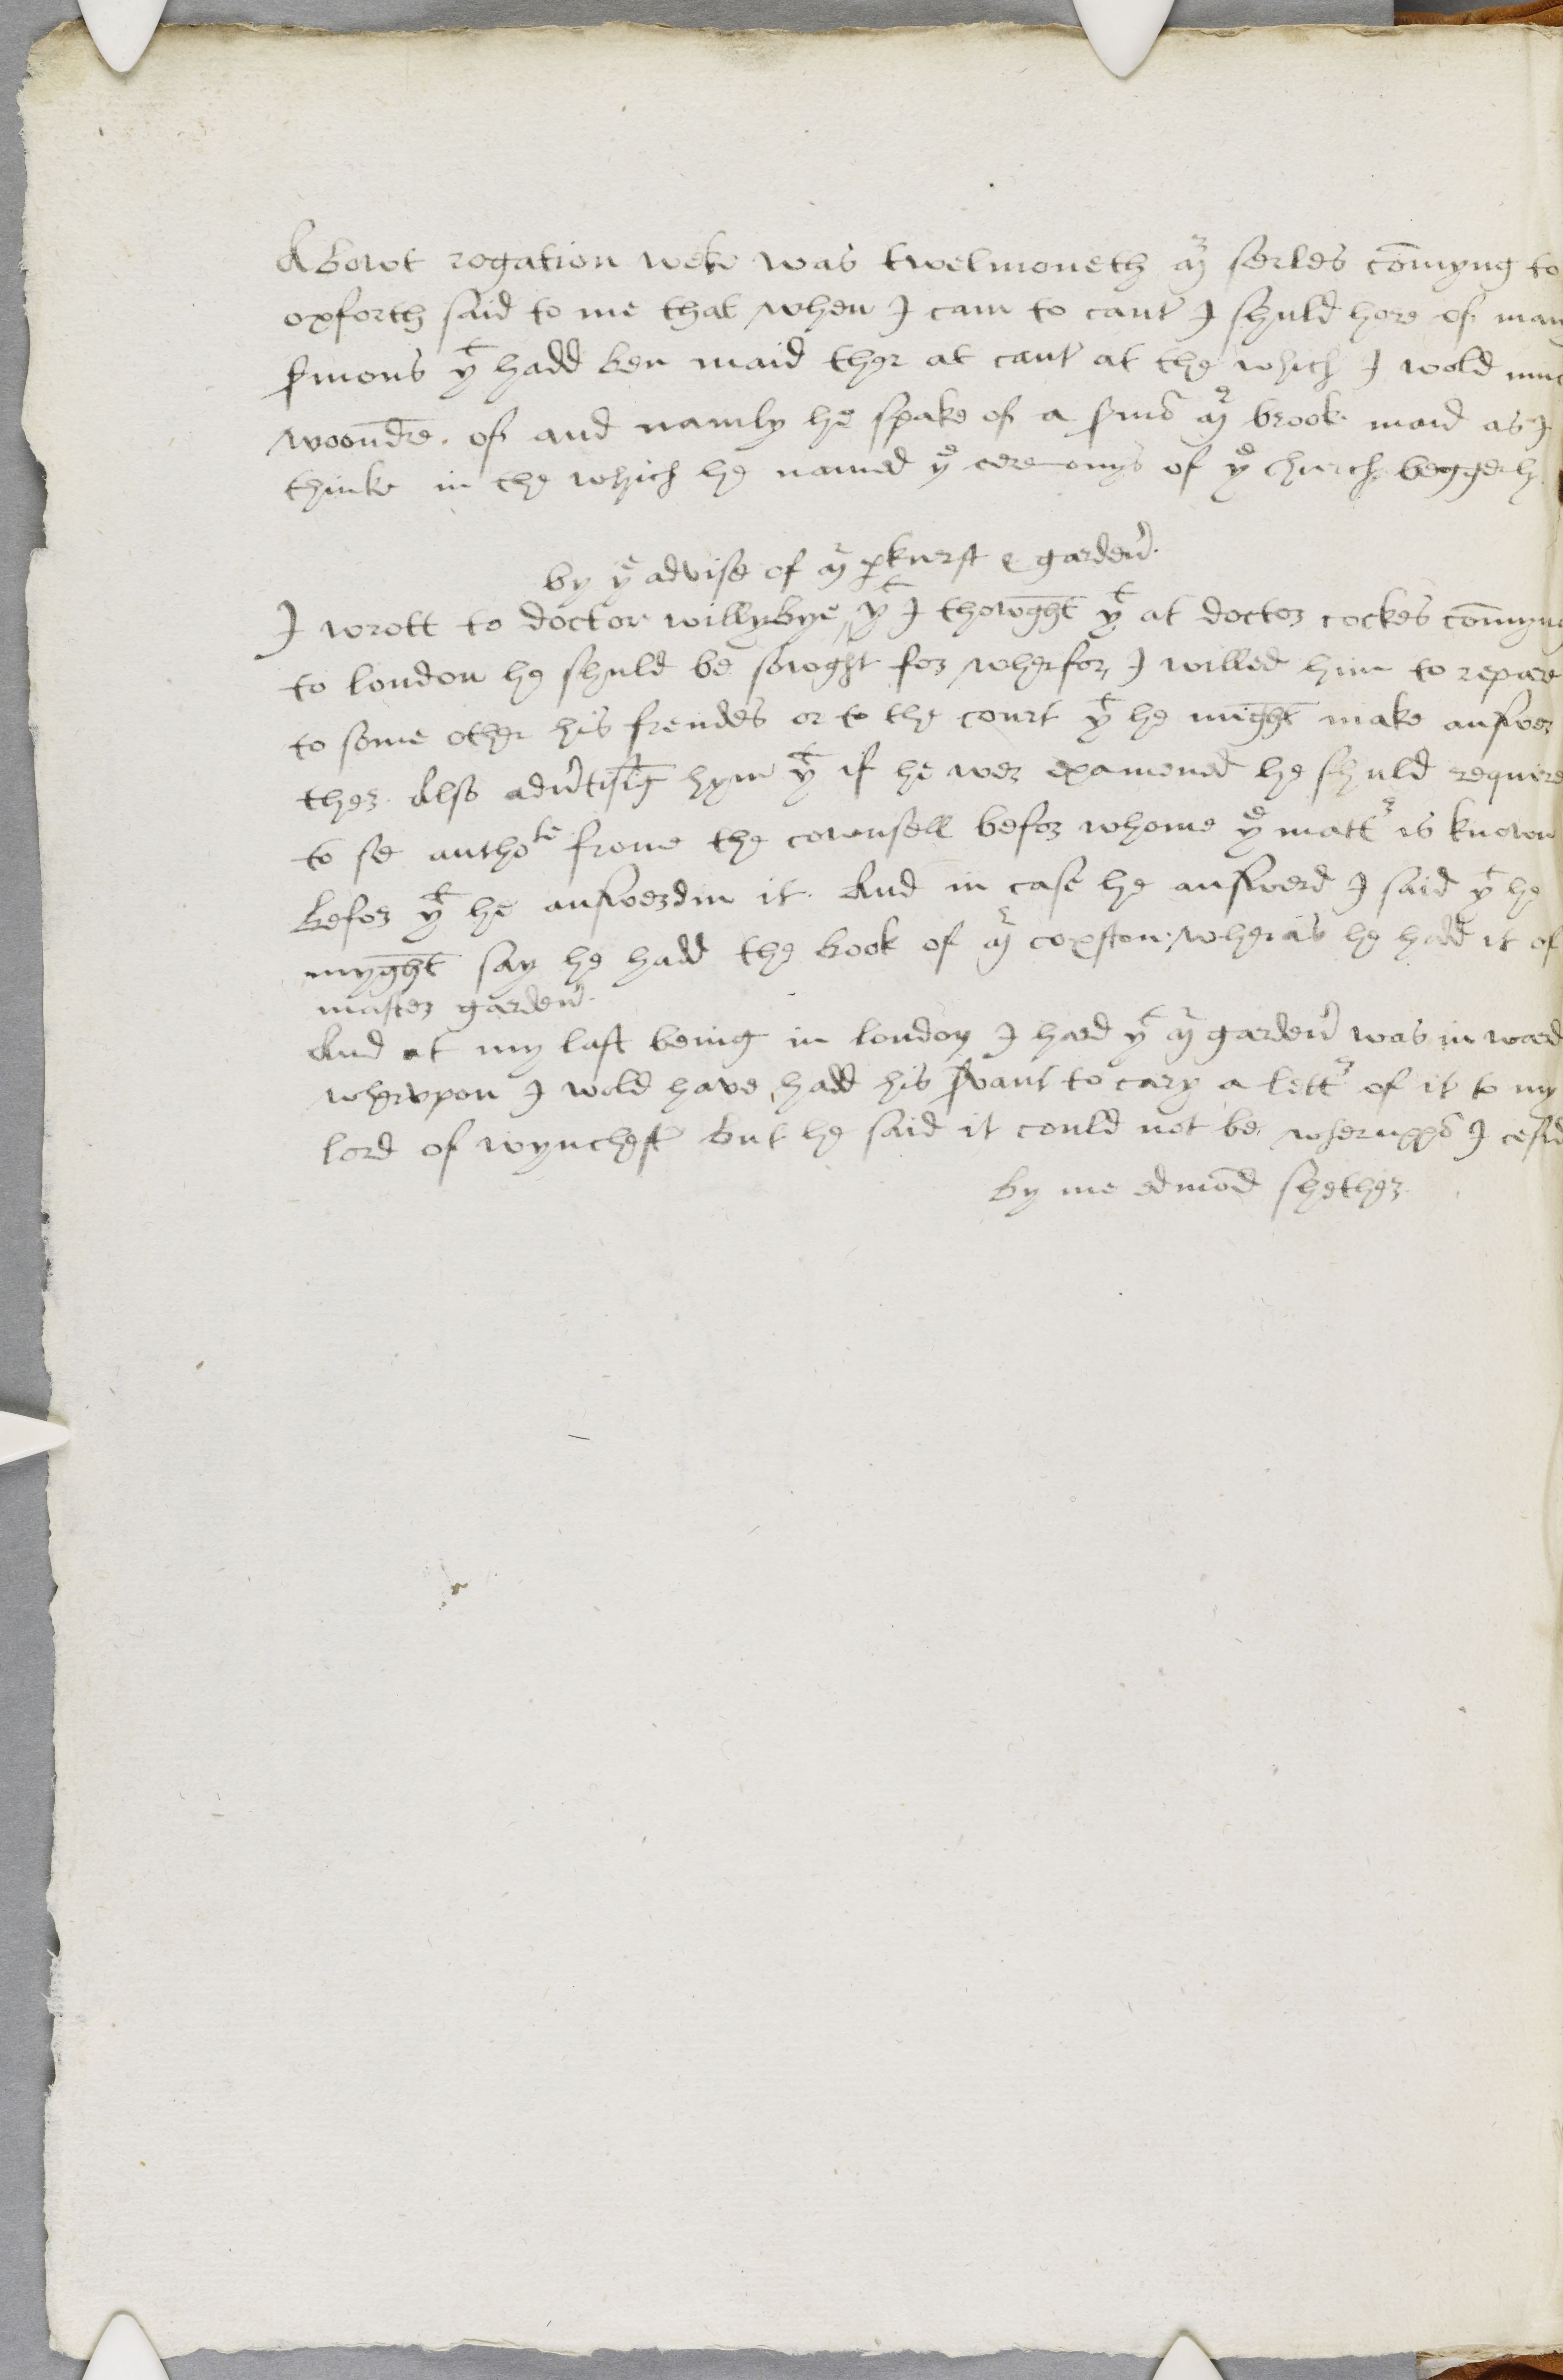 Abowt rogation weke was twelmoneth mr serles comyng to
oxforth said to me that when I cam to cant I shuld here of man
smons yt hadd ben maid ther at cant at the which I wold muc
woondre of and namly he spake of a smo mr brook maid as I
thinke in the which he named ye ceremonys of ye church beggerly
by ye advise of mr pkurst & gardenr
I wrott to doctor willybye yt I thowght yt at doctor cockes comyng
to london he shuld be sowght for wherfor I willed him to repare
to some other his frendes or to the court yt he might make answer
ther Also advrtisig hym yt if he wer examened he shuld requere
to se authote frome the cownsell befor whome ye mattr is known
befor yt he answerdm it. And in case he answerd I said yt he
myght say he hadd the book of mr coxston wheras he hadd it of
master gardenr
And at my last being in london I hard yt mr gardenr was in ward
whervpon I wold have hadd his svant to cary a lettr of it to my
lord of wynchest but he said it could not be wheruppo I cesid
by me edmod shether